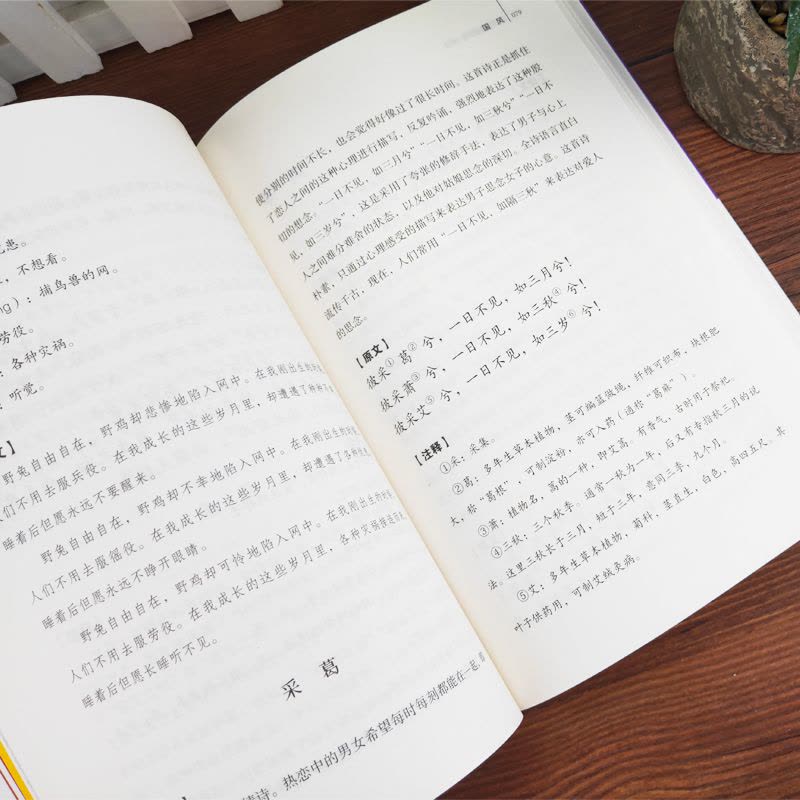 患。
，不想看。
ng）：捕鸟兽的网。
劳役。
：各种灾祸。
：听觉。
文】
野兔自由自在，野鸡却悲惨地陷入网中。在我刚出生的时候
人们不用去服兵役。在我成长的这些岁月里，却遭遇了种种不
睡着后但愿永远不要醒来。
野兔自由自在，野鸡却不幸地陷入网中。在我刚出生的时候
人们不用去服徭役。在我成长的这些岁月里，却遭遇了各种
睡着后但愿永远不睁开眼睛。
野兔自由自在，野鸡却可怜地陷入网中。在我刚出生的时候
人们不用去服劳役。在我成长的这些岁月里，各种灾祸接连
睡着后但愿长睡听不见。
采 葛
情诗。热恋中的男女希望每时每刻都能在一起，
国 风 079
使分别的时间不长，也会觉得好像过了很长时间。这首诗正是抓住
了恋人之间的这种心理进行描写，反复吟诵，强烈地表达了这种殷
切的想念。“一日不见，如三月兮”“一日不见，如三秋兮”“一日不
见，如三岁兮”，这是采用了夸张的修辞手法，表达了男子与心上
人之间难分难舍的状态，以及他对姑娘思念的深切。全诗语言直白
朴素，只通过心理感受的描写来表达男子思念女子的心意。这首诗
流传千古，现在，人们常用“一日不见，如隔三秋”来表达对爱人
的思念。
【原文】
彼采①葛②兮，一日不见，如三月兮！
彼采萧③兮，一日不见，如三秋④兮！
彼采艾⑤兮，一日不见，如三岁⑥兮！
【注释】
①采：采集。
②葛：多年生草本植物，茎可编篮做绳，纤维可织布，块根肥
大，称“葛根”，可制淀粉，亦可入药（通称“葛麻”）。
③萧：植物名，蒿的一种，即艾蒿。有香气，古时用于祭祀。
④三秋：三个秋季。通常一秋为一年，后又有专指秋三月的说
法。这里三秋长于三月，短于三年，意同三季，九个月。
⑤艾：多年生草本植物，菊科，茎直生，白色，高四五尺。其
叶子供药用，可制艾绒灸病。